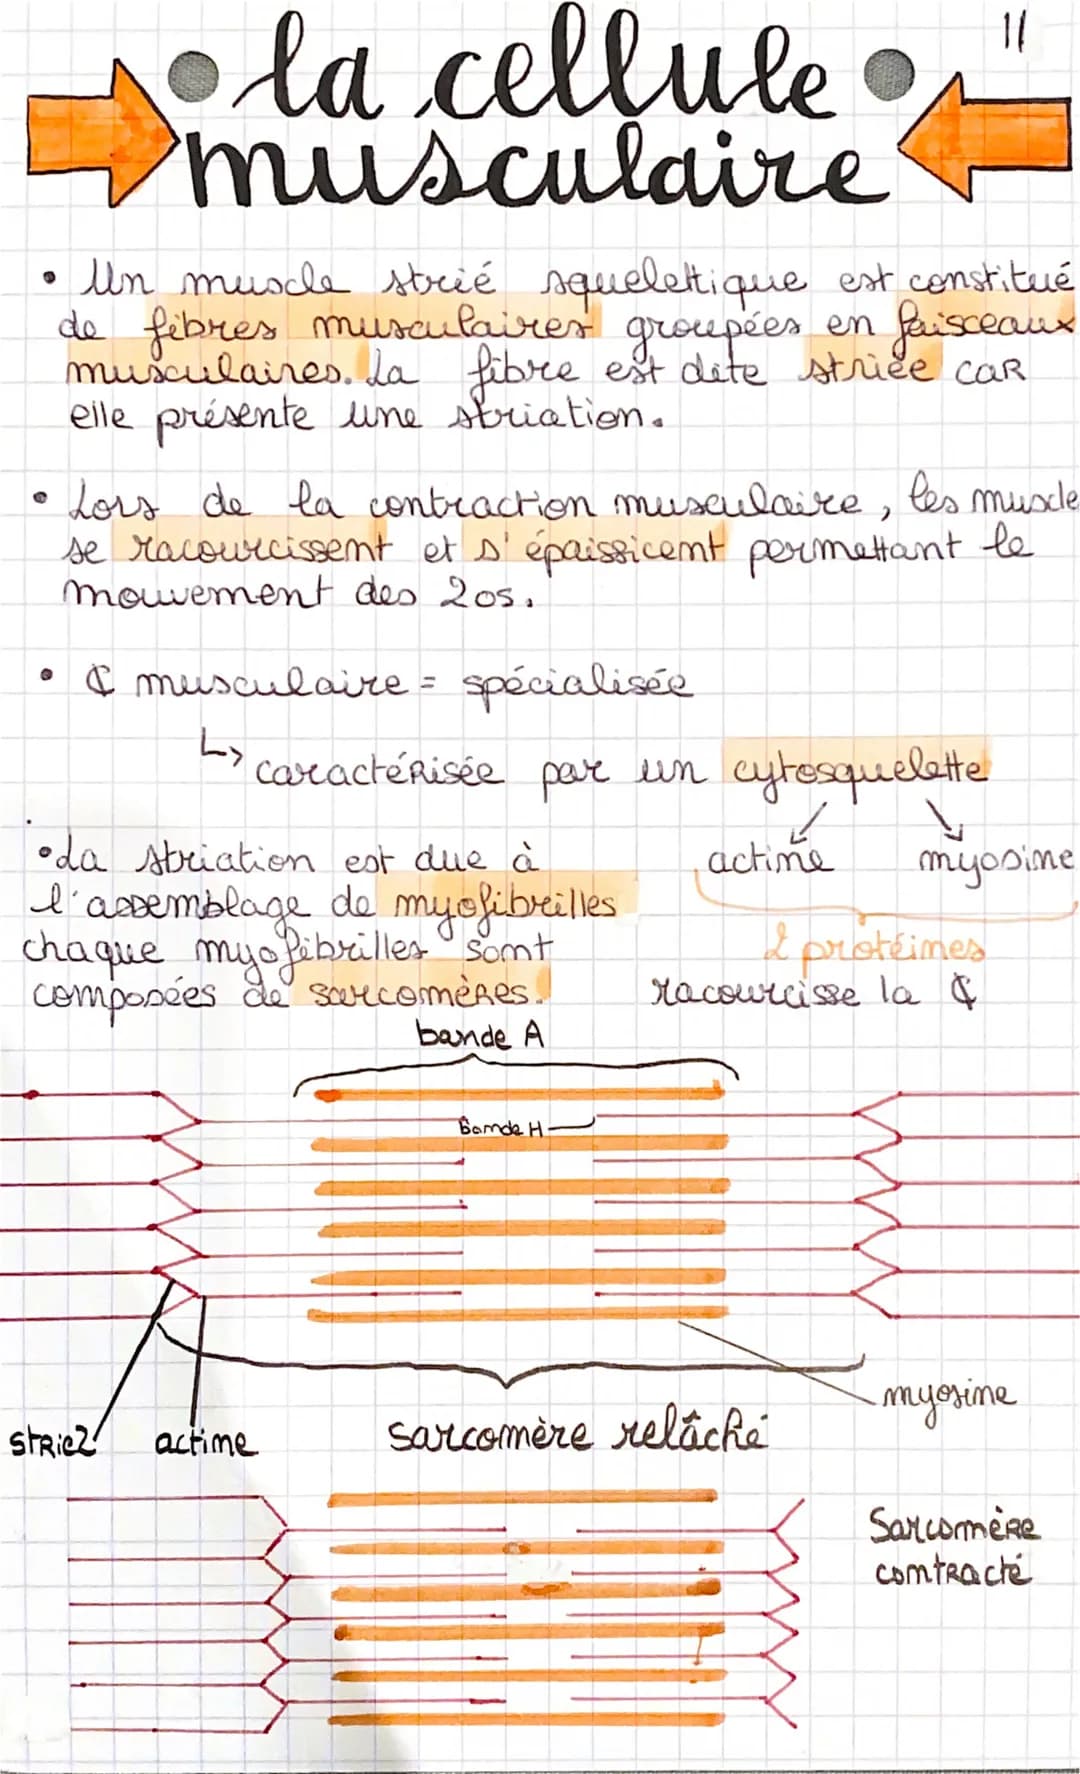 11
la cellule
musculaire
• Un muscle strié squelettique est constitué
de fibres musculaires groupées en faisceaux
musculaires. La fibre est dite striée car
elle présente une striation.
• Lors de la contraction musculaire, les muscle
se racourcissent et s'épaississent permettant le
mouvement des 2os.
• ₵ musculaire = spécialisée
↳ caractérisée par un cytosquelette
actine myosine
2 protéines
racourcisse la ₵
• La striation est due à
l'assemblage de myofibrilles
chaque myofibrilles sont
composées de sarcomères.
bande A
Bande H
strieZ
actine
sarcomère relâché
myosine
Sarcomère
contracté